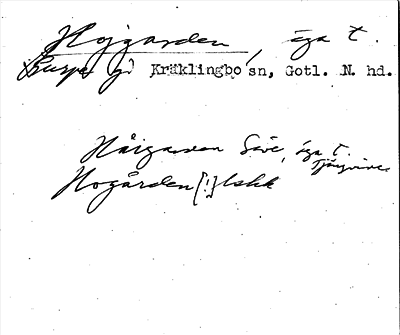 Hojgarden, äga t.
Burge gd Kräklingbo sn, Gotl. N. hd.
Håigarden Säve, äga t.
Tjängvide
Hogården [!] lskk